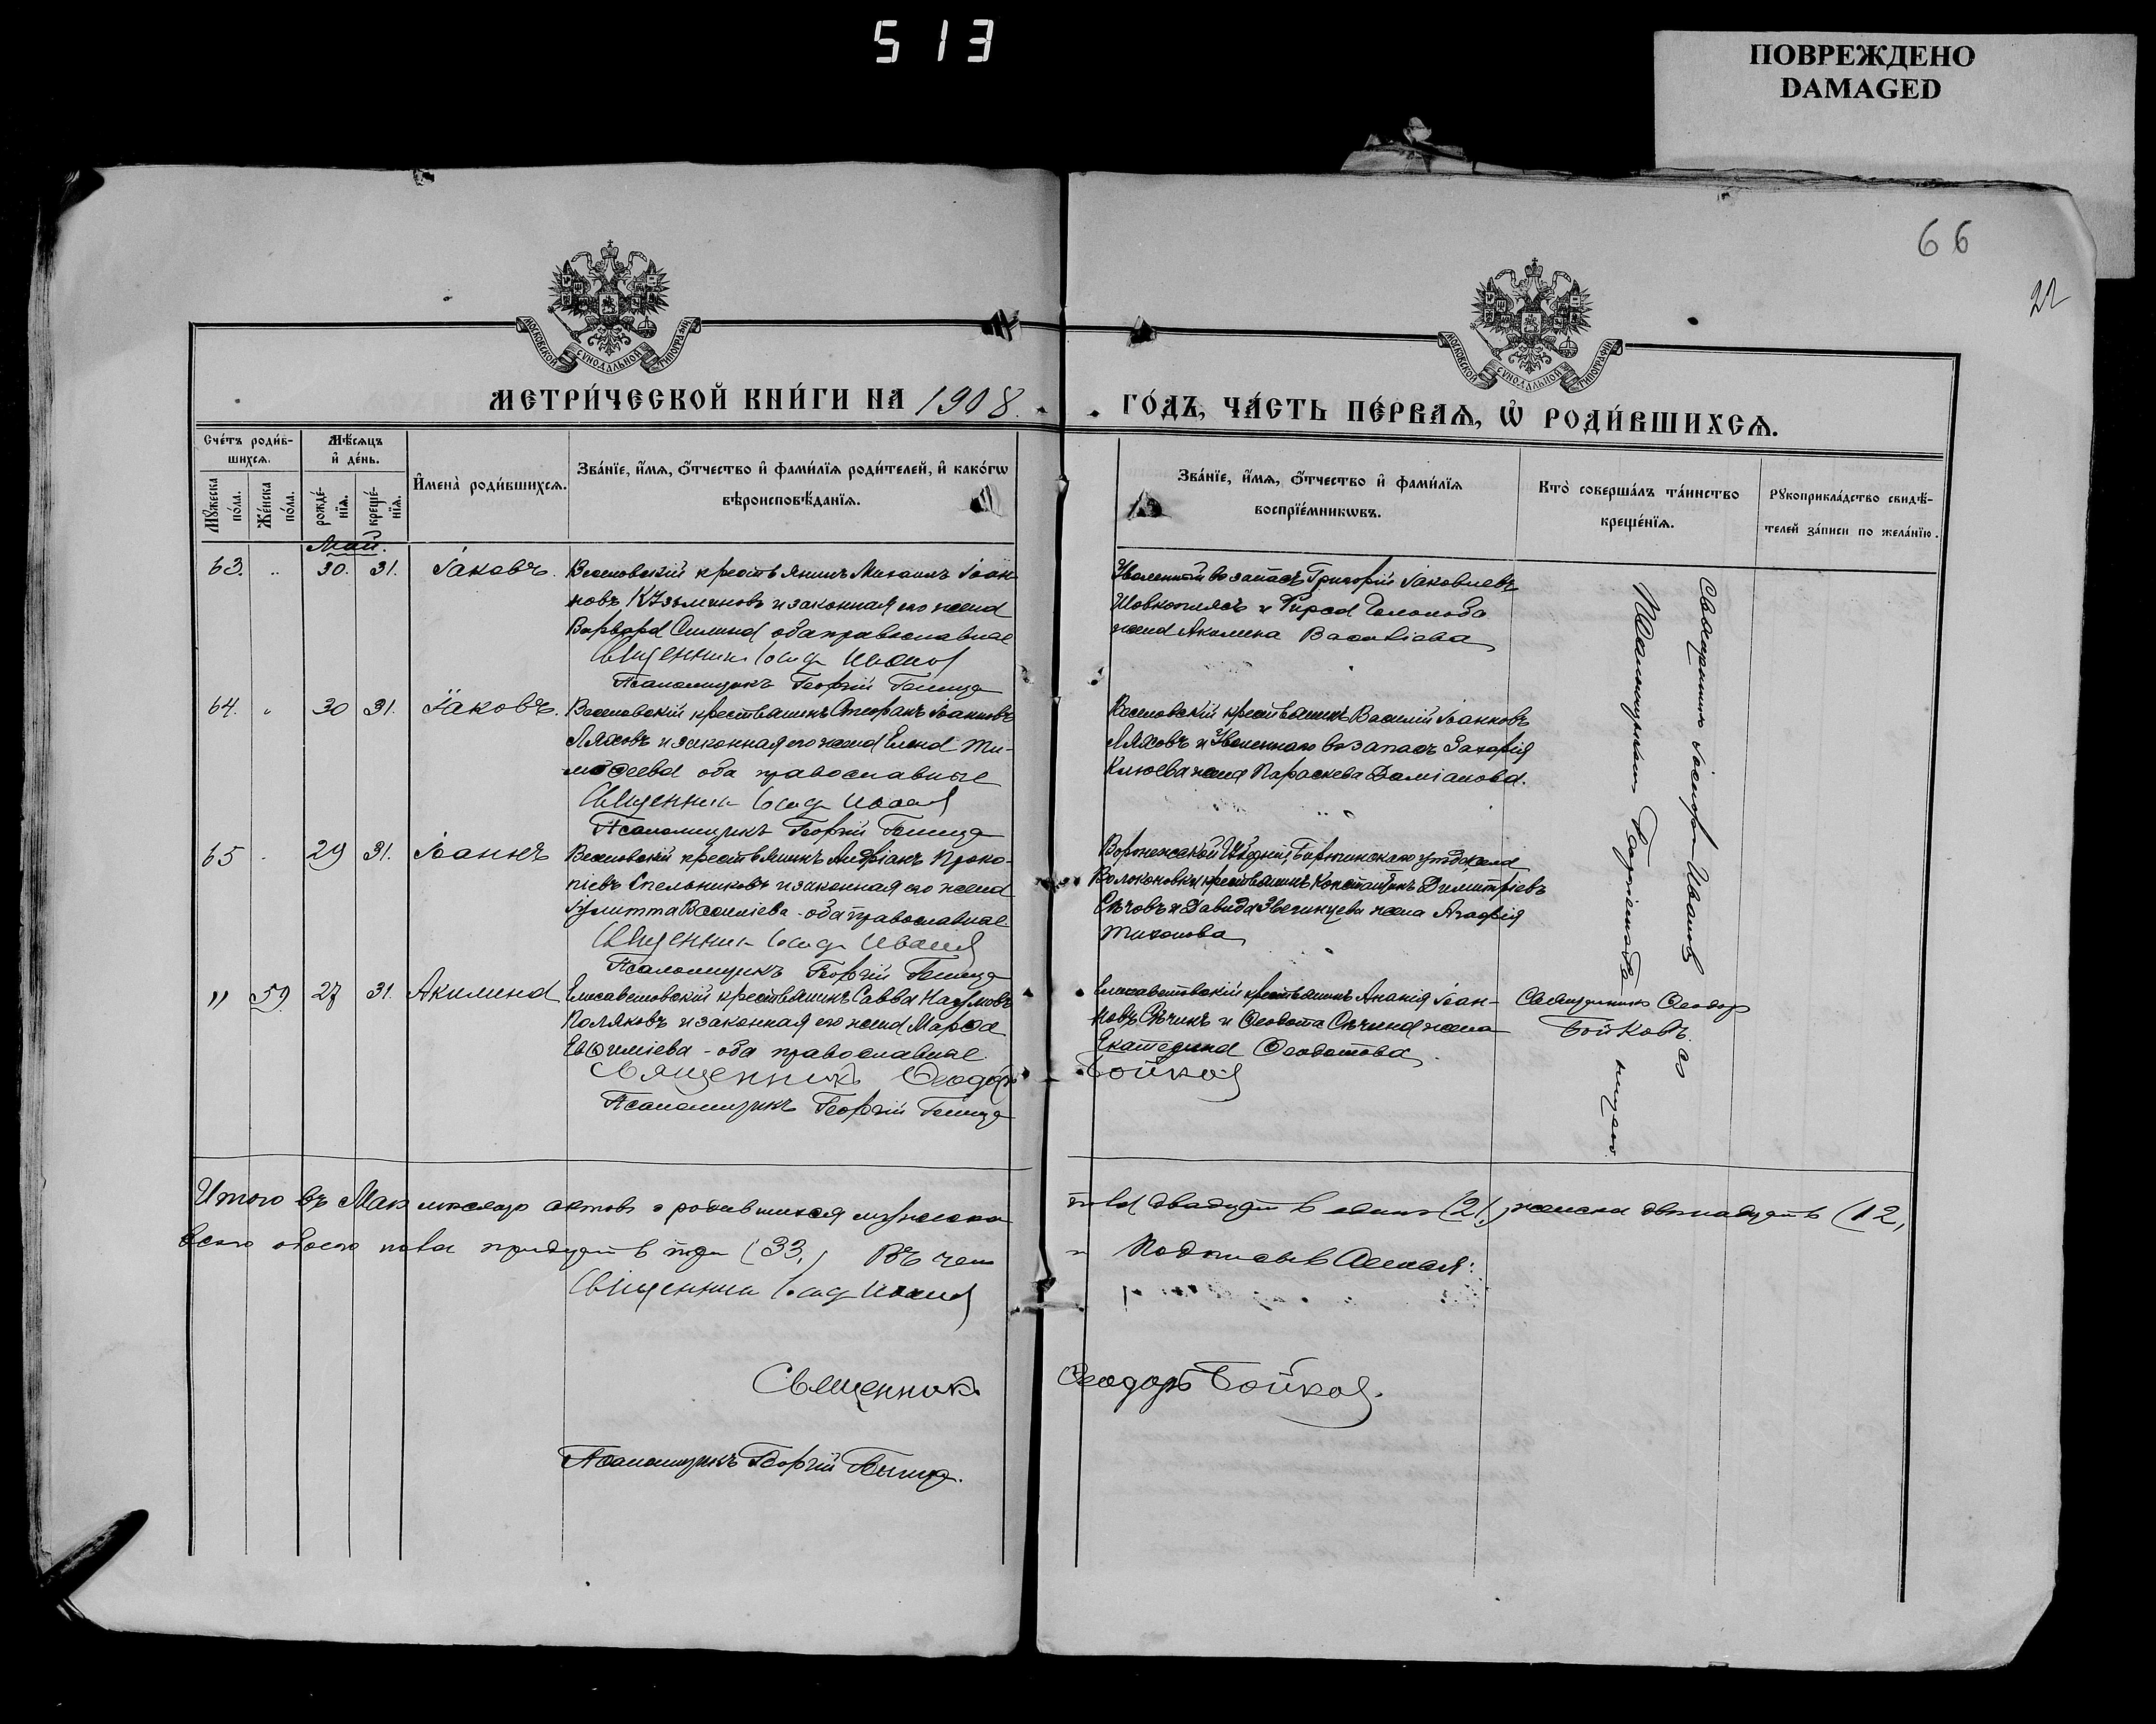 513
ПОВРЕЖДЕНО
DAMAGED
66
22
МОСКОВСКОЙ СУНОДАЛЬНОЙ ТИПОГРАФІИ
МОСКОВСКОЙ СУНОДАЛЬНОЙ ТИПОГРАФІИ
МЕТРИ́ЧЕСКОЙ КНИ́ГИ НА 1908.
ГО́ДЪ, ЧА́СТЬ ПЕ́РВАѦ, Ѡ҆ РОДИ́ВШИХСѦ.
Сче́тъ роди́в-
шихсѧ.
Мѣ́сѧцъ
и҆ де́нь.
Мꙋ́жеска по́ла.
Же́нска по́ла.
рожде́-
нїѧ.
креще́-
нїѧ.
И҆мена̀ роди́вшихсѧ.
Зва́нїе, и҆́мѧ, ѻ҆́тчество и҆ фами́лїѧ роди́телей, и҆ како́гѡ
вѣроисповѣ́данїѧ.
Зва́нїе, и҆́мѧ, ѻ҆́тчество и҆ фами́лїѧ
воспрїе́мникѡвъ.
Кто̀ соверша́лъ та́инство
креще́нїѧ.
Рꙋкоприкла́дство свидѣ́-
телей за́писи по жела́нїю.
Май.
63. " 30. 31. Іаковъ. Веселовскій крестьянинъ Михаилъ Іоан-
новъ Кузьминовъ и законная его жена
Варвара Силина оба православные
Священникъ Іосиф Иванов
Псаломщикъ Георгій
Уволенный въ запасъ Григорій Іаковлевъ
Шовкоплясъ и
жена Акилина Василіева
64. " 30 31. Іаковъ. Веселовскій крестьянинъ Стефанъ Іоанновъ
Ляховъ и законная его жена Елена Ти-
моѳеева оба православные
Священникъ Іосиф Иванов
Псаломщикъ Георгій
Веселовскій крестьянинъ Василій Іоанновъ
Ляховъ и Уволеннаго въ запасъ Захарія
Клюева жена Параскева Даміанова.
65 " 29 31. Іоаннъ Веселовскій крестьянинъ Андріанъ Проко-
піевъ и законная его жена
Іулитта Василіева - оба православные
Священникъ Іосиф Иванов
Псаломщикъ Георгій
Воронежской Губерніи, Бирюченскаго уѣзда села
Волоконовки крестьянинъ Константинъ Димитріевъ
и Давида Звегинцева жена Агафія
Тихонова
" 59 27 31. Акилина Елисаветовскій крестьянинъ Савва Наумовъ
Поляковъ и законная его жена Марѳа
Евѳиміева - оба православные.
Священникъ Ѳеодоръ Бойковъ
Псаломщикъ Георгій
Елисаветовскій крестьянинъ Ананія Іоан-
новъ и жена
Екатерина Ѳеодотова
Священникъ Ѳеодор
Бойковъ
Священникъ Іосифъ Ивановъ съ
Псаломщикомъ Георгіемъ
Итого въ Маѣ мѣсяцѣ актовъ о родившихся мужеска
пола двадцать одинъ (21,) женска двѣнадцать (12,)
всего обоего пола тридцать три (33,) Въ чемъ
и Подписываемся:
Священникъ Іосиф Иванов
Священникъ Ѳеодоръ Бойковъ.
Псаломщикъ Георгій